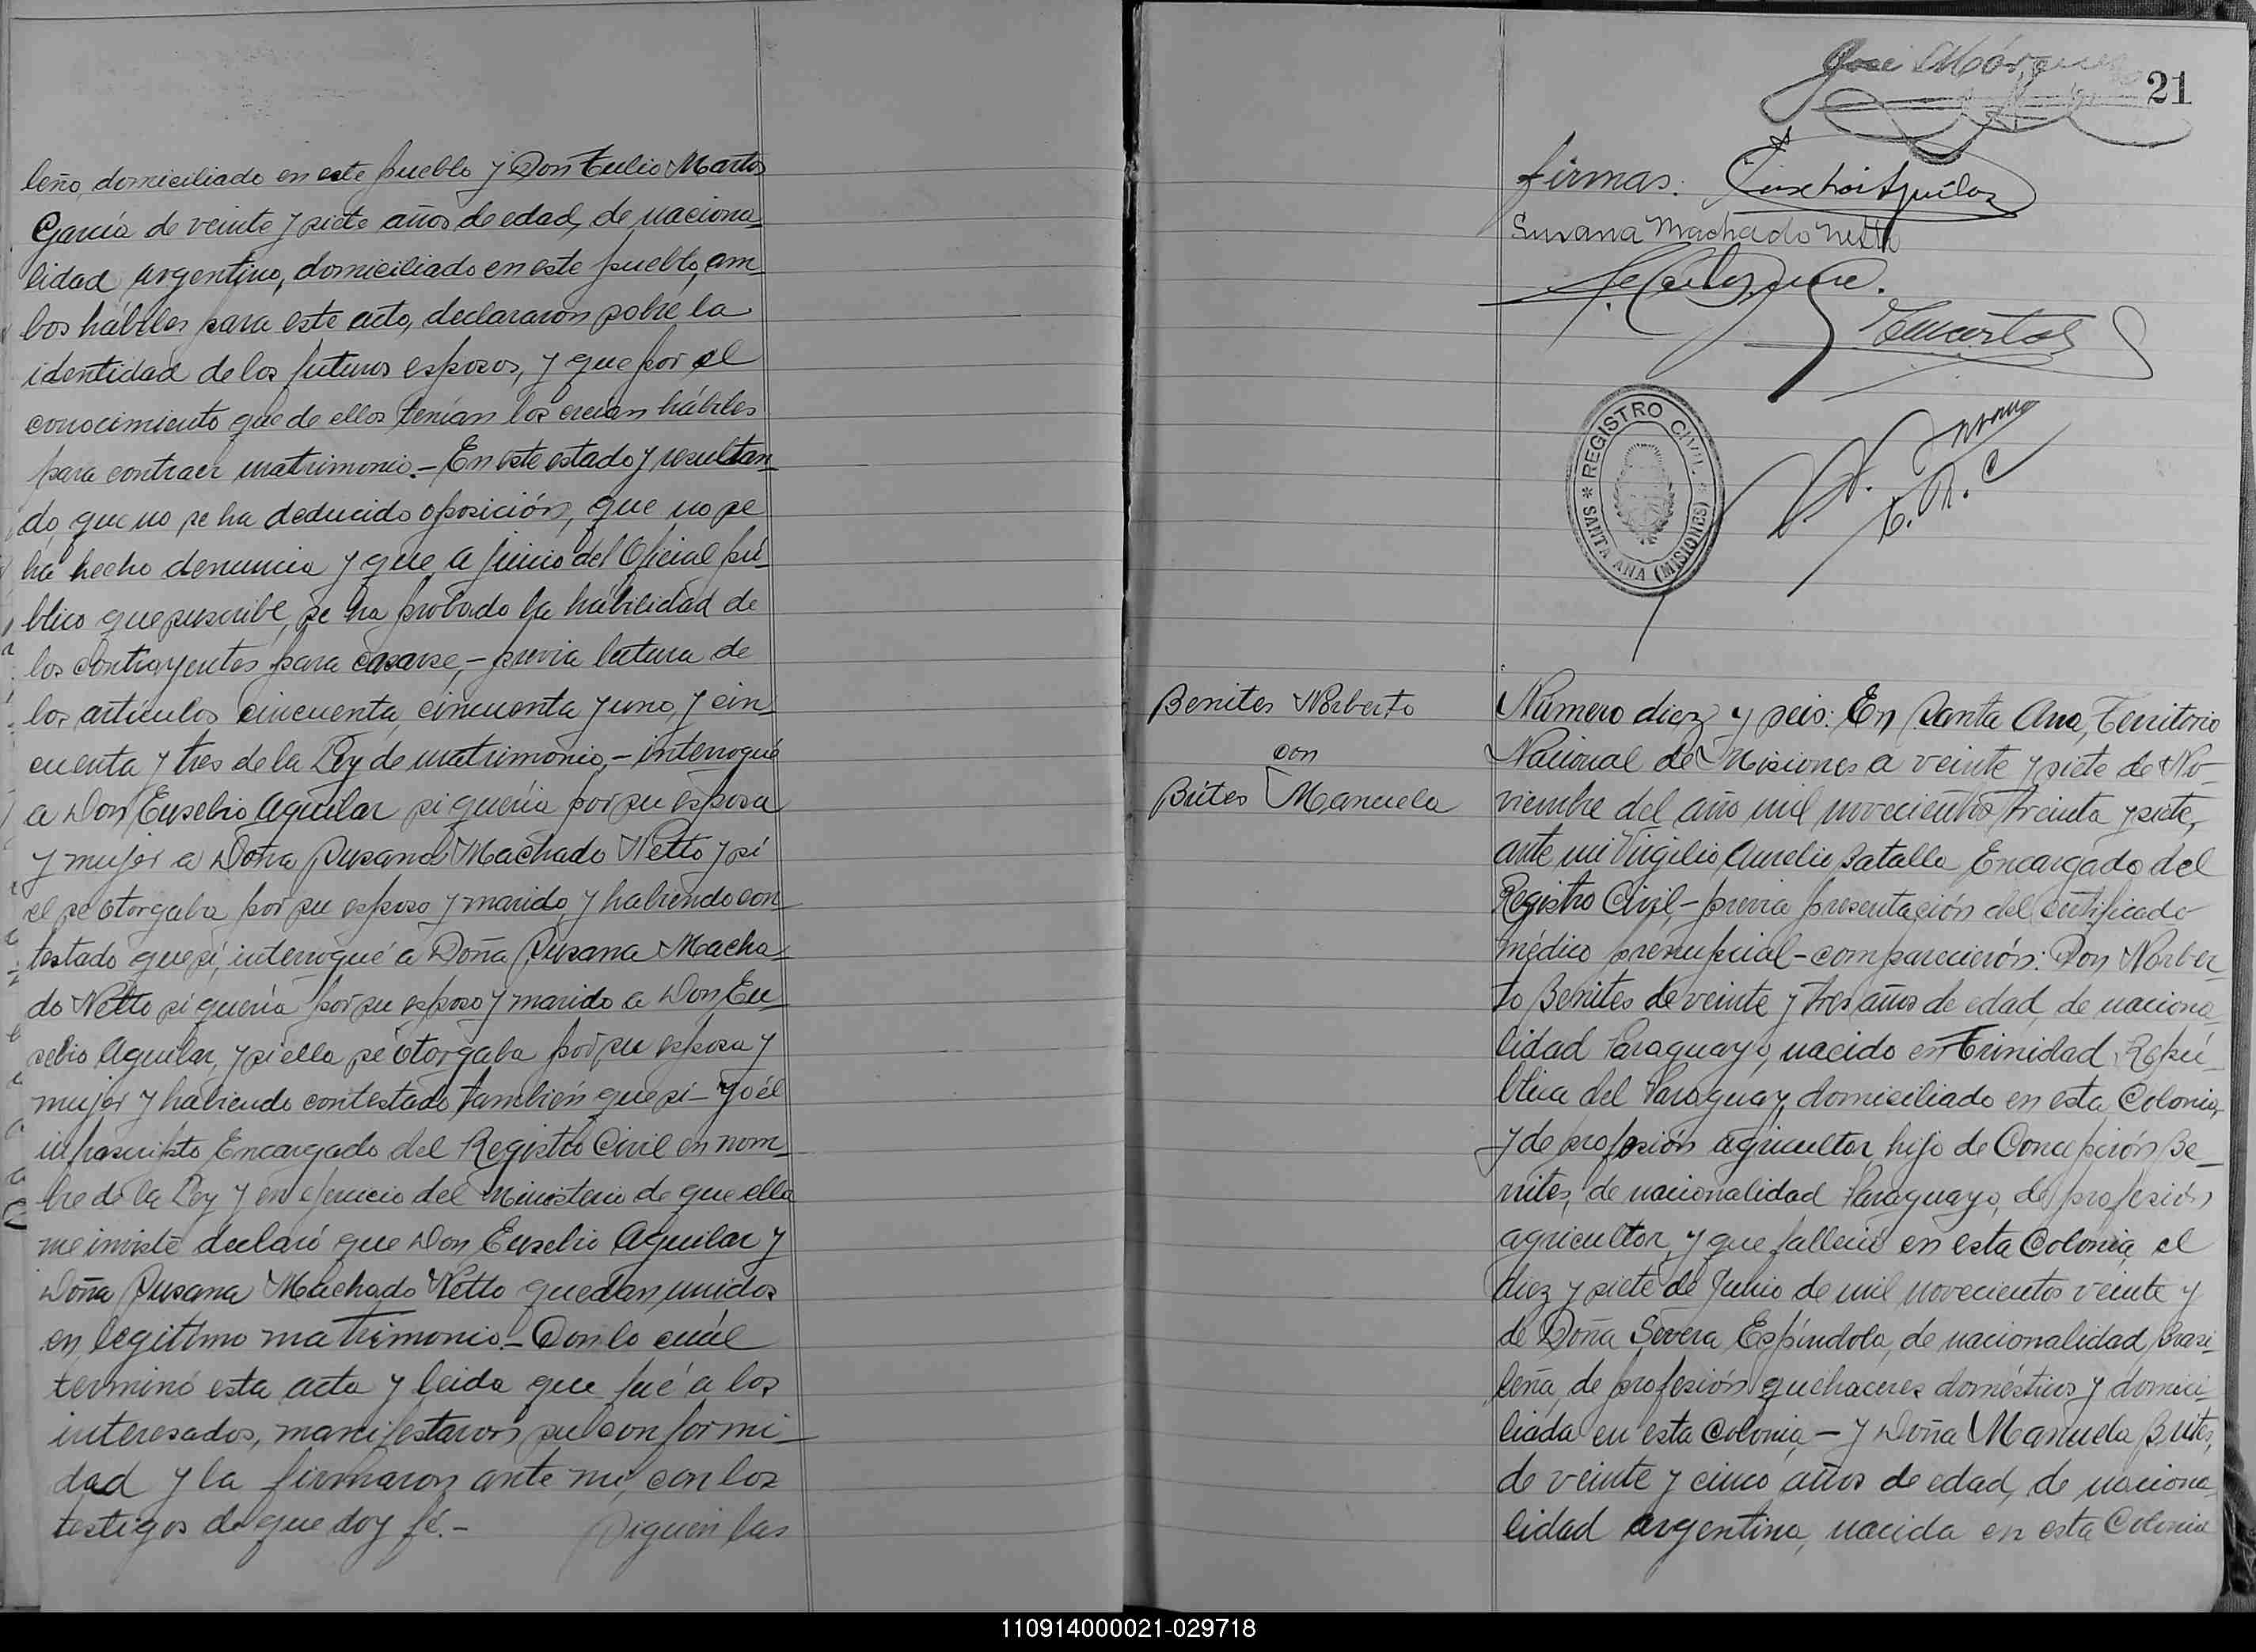 leño, domiciliado en este pueblo y Don Tulio Martos
García de veinte y siete años de edad, de naciona_
lidad argentino, domiciliado en este pueblo, am_
bos hábiles para este acto, declararon sobre la
identidad de los futuros esposos, y que por el
conocimiento que de ellos tenían los creían hábiles
para contraer matrimonio.- En este estado y resultan_
do, que no se ha deducido oposición, que no se
ha hecho denuncia y que a juicio del Oficial pú_
blico que suscribe, se ha probado la habilidad de
los contrayentes para casarse,- previa lectura de
los artículos cincuenta, cincuenta y uno, y cin_
cuenta y tres de la Ley de matrimonio,- interrogué
a Don Eusebio Aguilar si quería por su esposa
y mujer a Doña Susana Machado Netto y si
el se otorgaba por su esposo y marido, y habiendo con_
testado que si, interrogué a Doña Susana Macha_
do Netto si quería por su esposo y marido a Don Eu_
sebio Aguilar, y si ella se otorgaba por su esposa y
mujer y habiendo contestado también que si- Yo él
infrascripto Encargado del Registro Civil en nom_
bre de la Ley y en ejercicio del Ministerio de que ella
me inviste declaró que Don Eusebio Aguilar y
Doña Susana Machado Netto quedan unidos
en legítimo matrimonio.- Con lo cuál
terminó esta acta y leida que fué a los
interesados, manifestaron su conformi_
dad y la firmaron ante mí, con los
testigos de que doy fé.- Siguen las
21
firmas: Eusebio Aguilar
Susana Machado Netto
REGISTRO CIVIL
SANTA ANA (MISIONES)
E. R. C
Benites Norberto
con
Brites Manuela
Número diez y seis: En Santa Ana, Territorio
Nacional de Misiones a veinte y siete de No_
viembre del año mil novecientos treinta y siete,
ante mi Virgilio Aurelio Batalla Encargado del
Registro Civil,- previa presentación del certificado
médico prenupcial- comparecierón: Don Norber_
to Benites de veinte y tres años de edad, de naciona_
lidad Paraguayo, nacido en Trinidad, Repú_
blica del Paraguay, domiciliado en esta Colonia,
y de profesión agricultor, hijo de Concepción Be_
nites, de nacionalidad Paraguayo, de profesión
agricultor, y que falleció en esta Colonia, el
diez y siete de Julio de mil novecientos veinte y
de Doña Severa Espíndola, de nacionalidad Brasi_
leña, de profesión quehaceres domésticos y domici_
liada en esta Colonia,- y Doña Manuela Brites,
de veinte y cinco años de edad, de naciona_
lidad argentina, nacida en esta Colonia
110914000021-029718